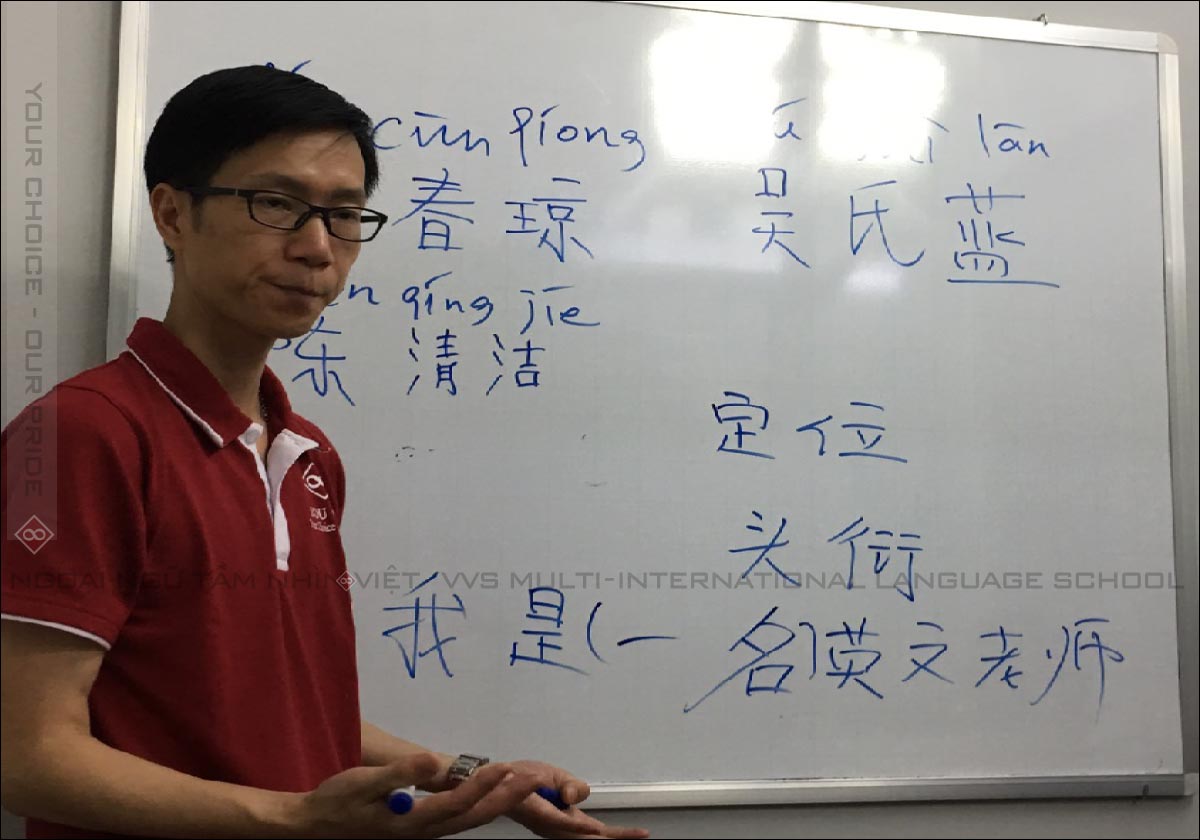 cūn qíong
春琼
lān
吴氏蓝
qíng jíe
陈清洁
定位
头衔
我是(一名)英文老师
YOUR CHOICE - OUR PRIDE
NGOẠI NGỮ TẦM NHÌN VIỆT, VVS MULTI-INTERNATIONAL LANGUAGE SCHOOL